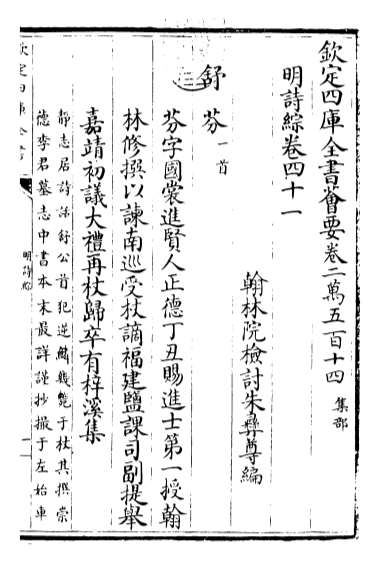 欽定四庫全書薈要卷二萬五百十四 集部
明詩綜卷四十一
翰林院檢討朱彝尊編
舒芬一首
芬字國裳進賢人正德丁丑賜進士第一授翰
林修撰以諫南巡受杖謫福建鹽課司副提舉
嘉靖初議大禮再杖歸卒有梓溪集
靜志居詩話舒公首犯逆鱗幾斃于杖其撰崇
德李君墓志中書本末最詳謹抄撮于左始車
欽定四庫全書
明詩綜